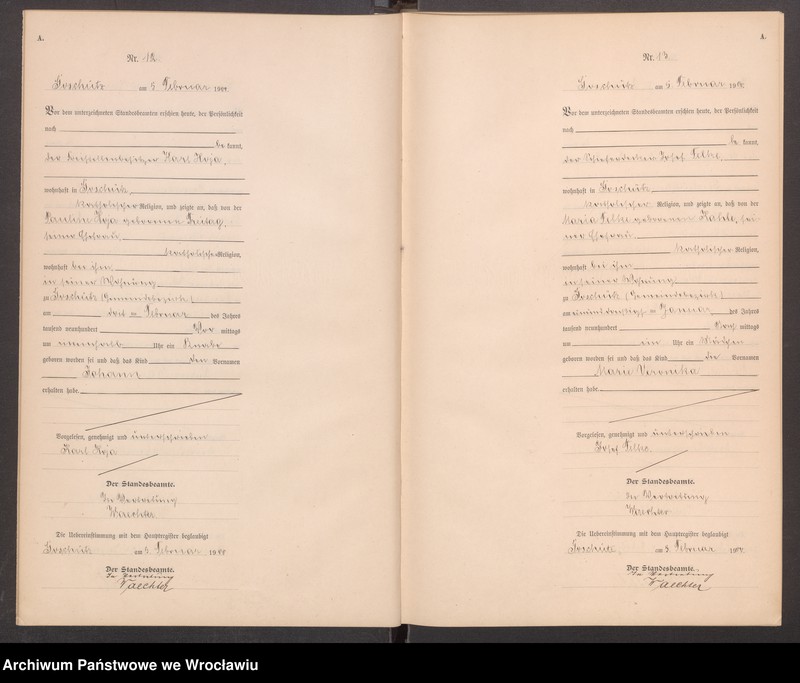 A.
Nr. 12.
Goschütz am 3 Februar 1900.
Vor dem unterzeichneten Standesbeamten erschien heute, der Persönlichkeit
nach
be kannt,
der Karl Koja,
wohnhaft in Goschütz
katholischer Religion, und zeigte an, daß von der
Pauline Koja geborenen Freitag,
seiner Ehefrau
katholischer Religion,
wohnhaft bei ihm
in seiner Wohnung
zu Goschütz (Gemeindebezirk)
am Februar des Jahres
tausend neunhundert Vor mittags
um Uhr ein Knabe
geboren worden sei und daß das Kind den Vornamen
Johann
erhalten habe.
Vorgelesen, genehmigt und unterschrieben
Karl Koja
Der Standesbeamte.
In Vertretung
Waechter
Die Uebereinstimmung mit dem Hauptregister beglaubigt
Goschütz am 3. Februar 1900
Der Standesbeamte.
In Vertretung
Waechter
A.
Nr. 13
Goschütz am Februar 1900.
Vor dem unterzeichneten Standesbeamten erschien heute, der Persönlichkeit
nach
be kannt,
der Josef
wohnhaft in Goschütz
katholischer Religion, und zeigte an, daß von der
Maria geborenen Kahle, sei
ner Ehefrau
katholischer Religion,
wohnhaft bei ihm
in seiner Wohnung
zu Goschütz (Gemeindebezirk)
am Januar des Jahres
tausend neunhundert Nach mittags
um ein Uhr ein Mädchen
geboren worden sei und daß das Kind die Vornamen
Marie Veronika
erhalten habe.
Vorgelesen, genehmigt und unterschrieben
Josef
Der Standesbeamte.
In Vertretung
Waechter
Die Uebereinstimmung mit dem Hauptregister beglaubigt
Goschütz, am 3. Februar 1900
Der Standesbeamte.
In Vertretung
Waechter
Archiwum Państwowe we Wrocławiu